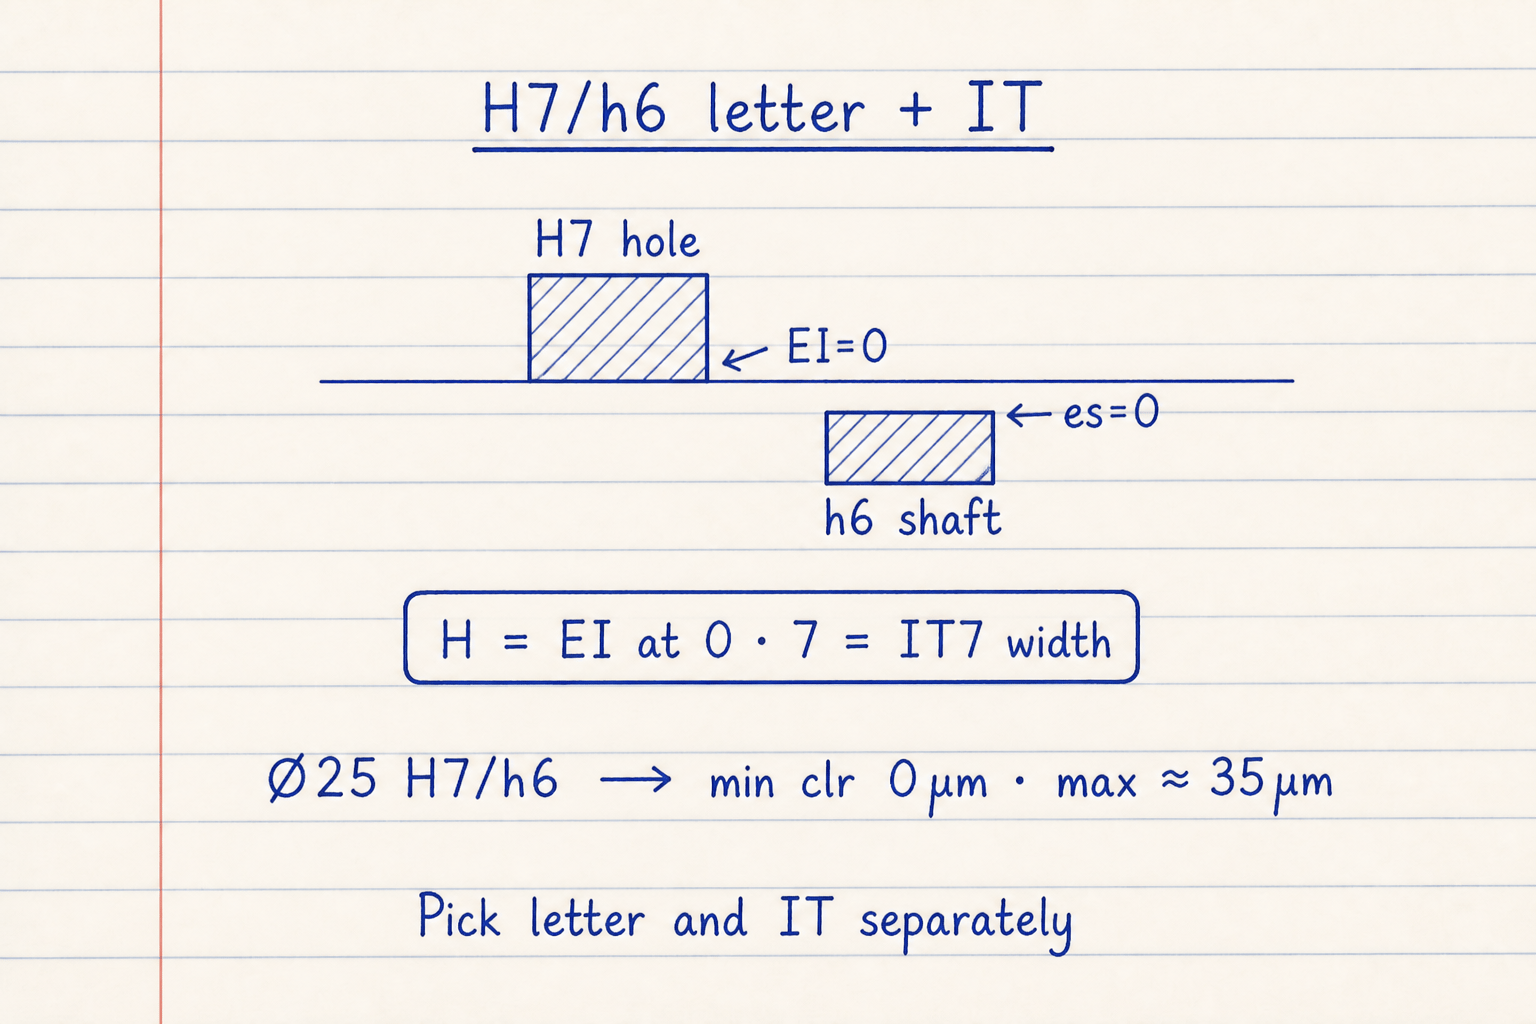 H7/h6 letter + IT
H7 hole
← EI=0
← es=0
h6 shaft
H = EI at 0 · 7 = IT7 width
Ø25 H7/h6 → min clr 0 µm · max ≈ 35 µm
Pick letter and IT separately